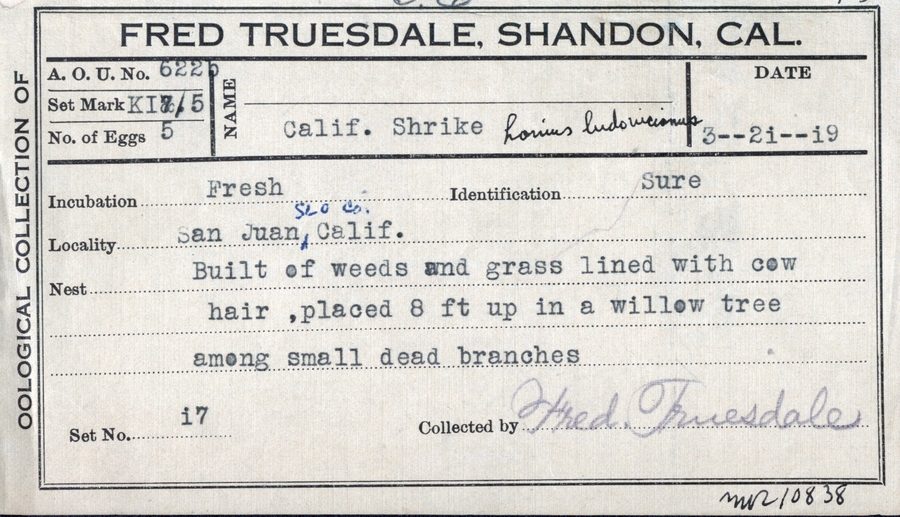 OOLOGICAL COLLECTION OF
FRED TRUESDALE, SHANDON, CAL.
A. O. U. No. 622b
Set Mark 5
No. of Eggs 5
NAME
Calif. Shrike Lanius ludovicianus
DATE
3--2i--i9
Incubation Fresh
Identification Sure
SLO Co.
Locality San Juan, Calif.
Nest Built of weeds and grass lined with cow
hair ,placed 8 ft up in a willow tree
among small dead branches
Set No. i7
Collected by Fred. Truesdale
10838